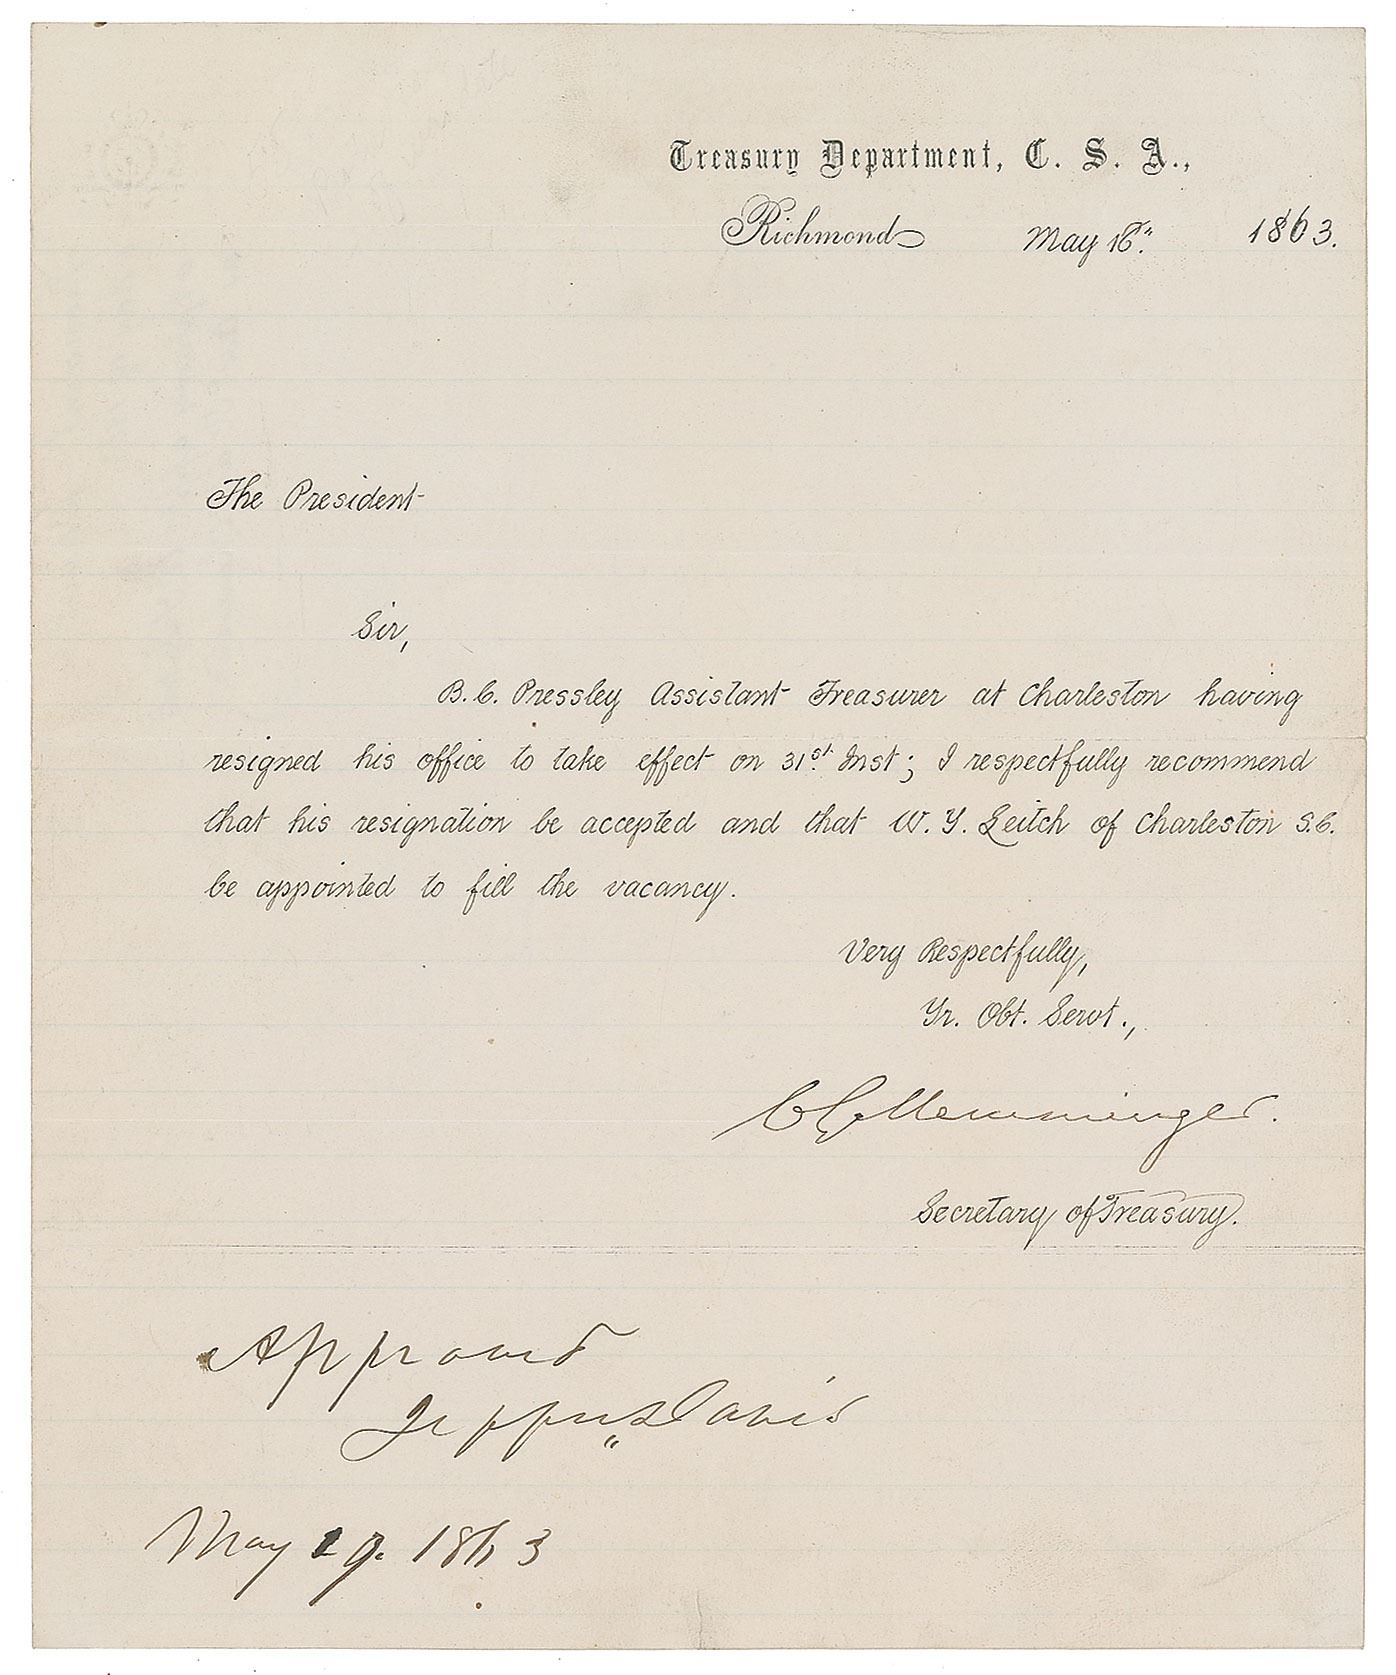 Treasury Department, C. S. A.,
Richmond May 16th. 1863.
The President
Sir,
B. C. Pressley Assistant Treasurer at Charleston having
resigned his office to take effect on 31st. Inst; I respectfully recommend
that his resignation be accepted and that W. Y. Leitch of Charleston S.C.
be appointed to fill the vacancy.
Very Respectfully,
Yr. Obt. Servt.,
C G Memminger.
Secretary of Treasury.
Approved
Jeffn Davis
May 19. 1863